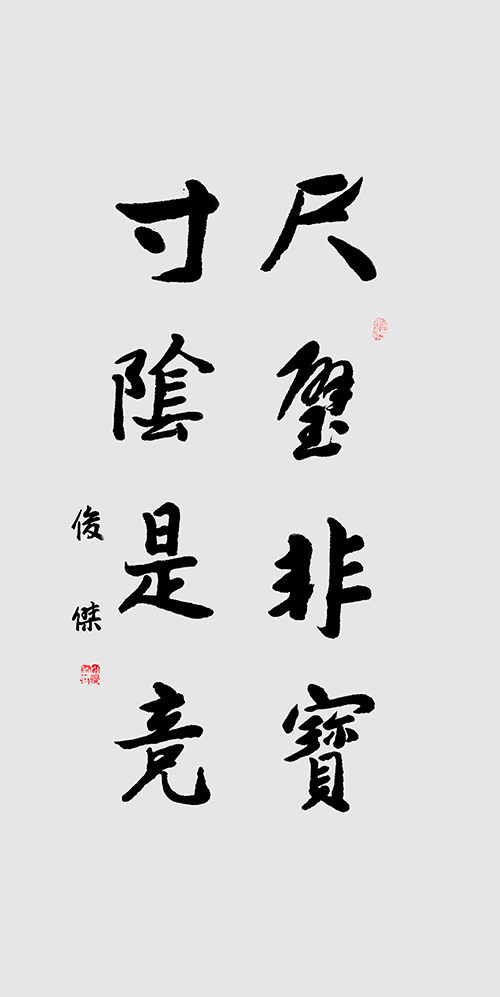 尺璧非寶
寸陰是竞
俊傑